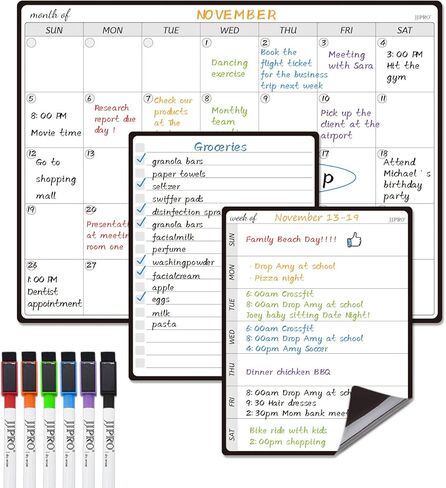 month of NOVEMBER JJPRO
SUN MON TUE WED THU FRI SAT
1 2 3 4
Dancing
exercise
Book the
flight ticket
for the business
trip next week
Meeting
with Sara
3:00 PM
Hit the
gym
5 6 7 8 9 10 11
8:00 PM
Movie time
Research
report due
day!
Check our
products
at The
Monthly
team
Pick up the
client at the
airport
12 13 17 18
Go to
shopping
mall
p
Attend
Michael's
birthday
party
19 20
Presentati
at meetin
room one
26 27
1:00 PM
Dentist
appointment
Groceries
granola bars
paper towels
seltzer
swiffer pads
disinfection spra
granola bars
facialmilk
perfume
washingpowder
facialcream
apple
eggs
milk
pasta
week of November 13-19 JJPRO
SUN
Family Beach Day!!!!
MON
· Drop Amy at school
· Pizza night
TUE
6:00am Crossfit
8:00am Drop Amy at school
Joey baby sitting Date Night!
WED
6:00am Crossfit
8:00am Drop Amy at school
4:00pm Amy Soccer
THU
Dinner chichken BBQ
FRI
8:00am Drop Amy at scho
9:30 Hair dresses
2:30pm Mom bank mee
SAT
Bike ride with kids
2:00pm shopping
JJPRO
JJPRO
JJPRO
JJPRO
JJPRO
JJPRO